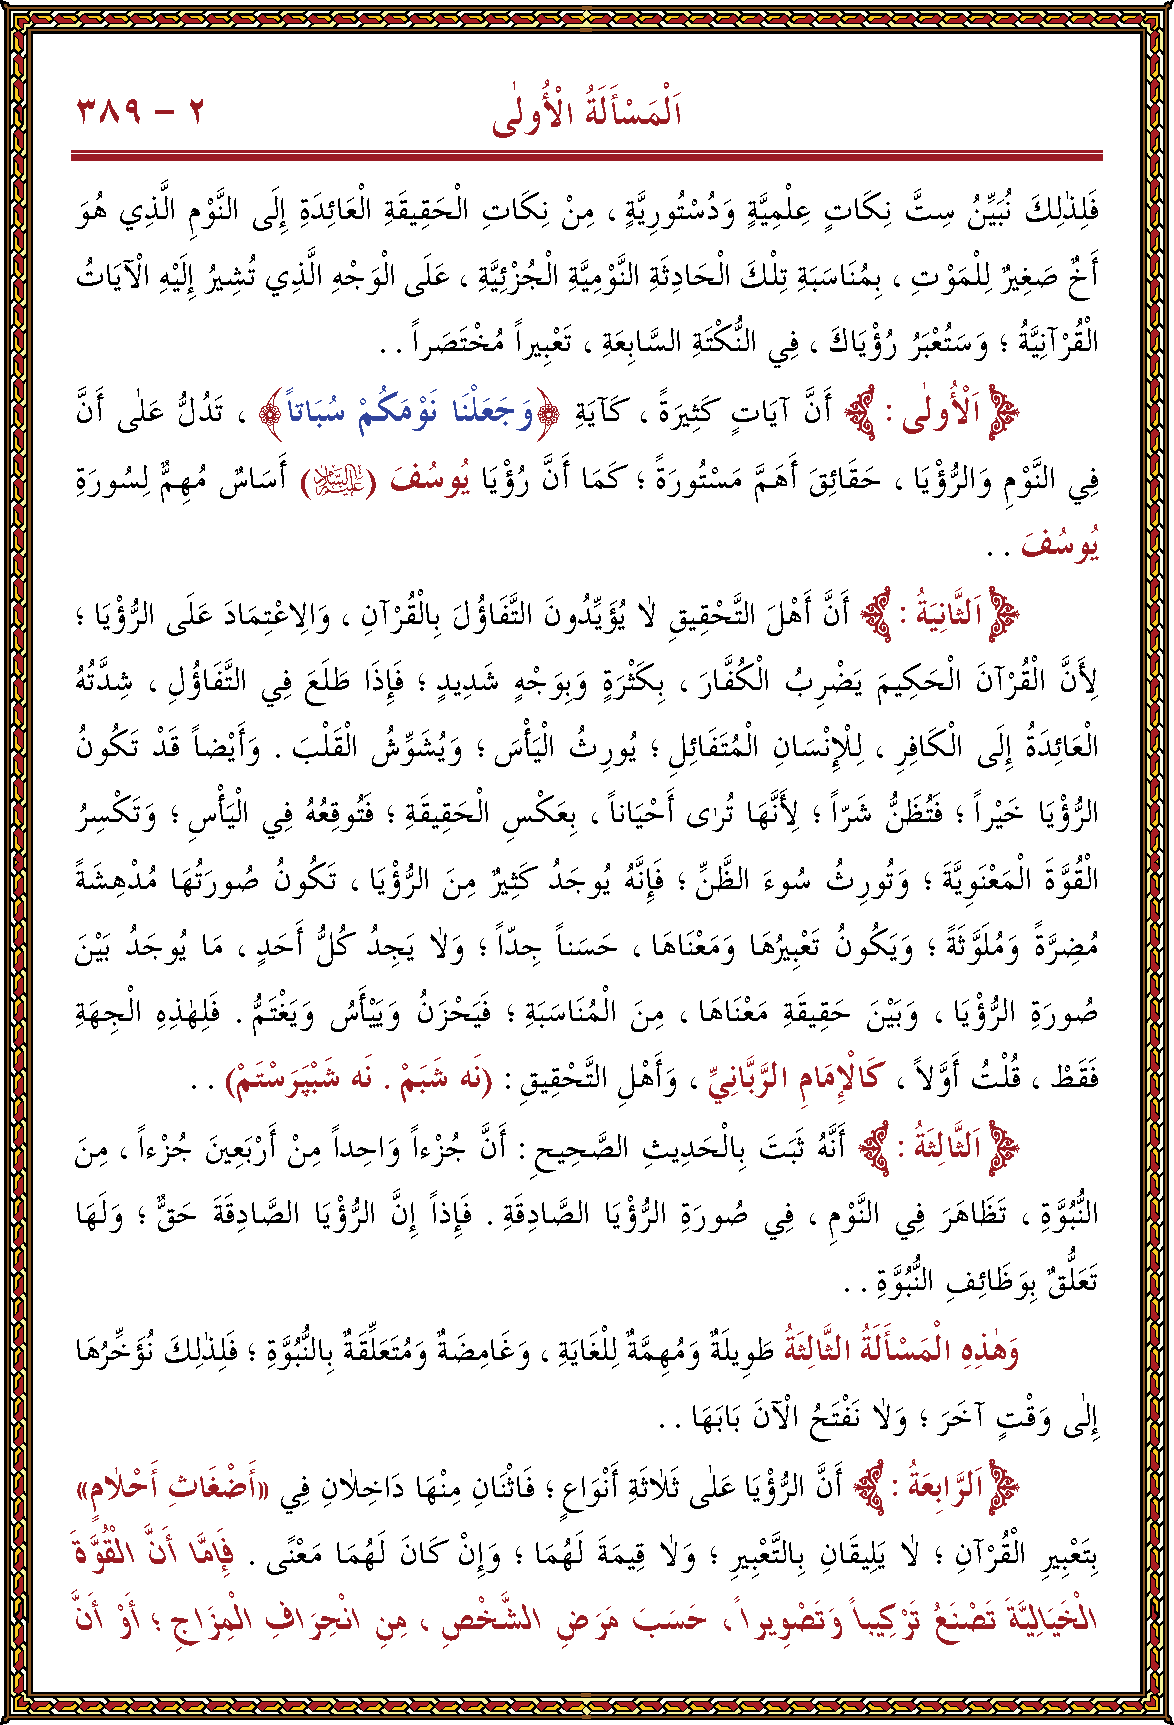 اَلْمَسْأَلَةُ الْأُولٰى
٢ – ٣٨٩
فَلِذٰلِكَ نُبَيِّنُ سِتَّ نِكَاتٍ عِلْمِيَّةٍ وَدُسْتُورِيَّةٍ ، مِنْ نِكَاتِ الْحَقِيقَةِ الْعَائِدَةِ إِلَى النَّوْمِ الَّذِي هُوَ
أَخٌ صَغِيرٌ لِلْمَوْتِ ، بِمُنَاسَبَةِ تِلْكَ الْحَادِثَةِ النَّوْمِيَّةِ الْجُزْئِيَّةِ ، عَلَى الْوَجْهِ الَّذِي تُشِيرُ إِلَيْهِ الْآيَاتُ
الْقُرْآنِيَّةُ ؛ وَسَتُعْبَرُ رُؤْيَاكَ ، فِي النُّكْتَةِ السَّابِعَةِ ، تَعْبِيراً مُخْتَصَراً . .
اَلْأُولٰى : أَنَّ آيَاتٍ كَثِيرَةً ، كَآيَةِ ﴿وَجَعَلْنَا نَوْمَكُمْ سُبَاتاً﴾ ، تَدُلُّ عَلٰى أَنَّ
فِي النَّوْمِ وَالرُّؤْيَا ، حَقَائِقَ أَهَمَّ مَسْتُورَةً ؛ كَمَا أَنَّ رُؤْيَا يُوسُفَ (عليه السلام) أَسَاسٌ مُهِمٌّ لِسُورَةِ
يُوسُفَ . .
اَلثَّانِيَةُ : أَنَّ أَهْلَ التَّحْقِيقِ لَا يُؤَيِّدُونَ التَّفَاؤُلَ بِالْقُرْآنِ ، وَالِاعْتِمَادَ عَلَى الرُّؤْيَا ؛
لِأَنَّ الْقُرْآنَ الْحَكِيمَ يَضْرِبُ الْكُفَّارَ ، بِكَثْرَةٍ وَبِوَجْهٍ شَدِيدٍ ؛ فَإِذَا طَلَعَ فِي التَّفَاؤُلِ ، شِدَّتُهُ
الْعَائِدَةُ إِلَى الْكَافِرِ ، لِلْإِنْسَانِ الْمُتَفَائِلِ ؛ يُورِثُ الْيَأْسَ ؛ وَيُشَوِّشُ الْقَلْبَ . وَأَيْضاً قَدْ تَكُونُ
الرُّؤْيَا خَيْراً ؛ فَتُظَنُّ شَرّاً ؛ لِأَنَّهَا تُرٰى أَحْيَاناً ، بِعَكْسِ الْحَقِيقَةِ ؛ فَتُوقِعُهُ فِي الْيَأْسِ ؛ وَتَكْسِرُ
الْقُوَّةَ الْمَعْنَوِيَّةَ ؛ وَتُورِثُ سُوءَ الظَّنِّ ؛ فَإِنَّهُ يُوجَدُ كَثِيرٌ مِنَ الرُّؤْيَا ، تَكُونُ صُورَتُهَا مُدْهِشَةً
مُضِرَّةً وَمُلَوَّثَةً ؛ وَيَكُونُ تَعْبِيرُهَا وَمَعْنَاهَا ، حَسَناً جِدّاً ؛ وَلَا يَجِدُ كُلُّ أَحَدٍ ، مَا يُوجَدُ بَيْنَ
صُورَةِ الرُّؤْيَا ، وَبَيْنَ حَقِيقَةِ مَعْنَاهَا ، مِنَ الْمُنَاسَبَةِ ؛ فَيَحْزَنُ وَيَيْأَسُ وَيَغْتَمُّ . فَلِهٰذِهِ الْجِهَةِ
فَقَطْ ، قُلْتُ أَوَّلاً ، كَالْإِمَامِ الرَّبَّانِيِّ ، وَأَهْلِ التَّحْقِيقِ : (نَه شَبَمْ . نَه شَبْپَرَسْتَمْ) . .
اَلثَّالِثَةُ : أَنَّهُ ثَبَتَ بِالْحَدِيثِ الصَّحِيحِ : أَنَّ جُزْءاً وَاحِداً مِنْ أَرْبَعِينَ جُزْءاً ، مِنَ
النُّبُوَّةِ ، تَظَاهَرَ فِي النَّوْمِ ، فِي صُورَةِ الرُّؤْيَا الصَّادِقَةِ . فَإِذاً إِنَّ الرُّؤْيَا الصَّادِقَةَ حَقٌّ ؛ وَلَهَا
تَعَلُّقٌ بِوَظَائِفِ النُّبُوَّةِ . .
وَهٰذِهِ الْمَسْأَلَةُ الثَّالِثَةُ طَوِيلَةٌ وَمُهِمَّةٌ لِلْغَايَةِ ، وَغَامِضَةٌ وَمُتَعَلِّقَةٌ بِالنُّبُوَّةِ ؛ فَلِذٰلِكَ نُؤَخِّرُهَا
إِلٰى وَقْتٍ آخَرَ ؛ وَلَا نَفْتَحُ الْآنَ بَابَهَا . .
اَلرَّابِعَةُ : أَنَّ الرُّؤْيَا عَلٰى ثَلَاثَةِ أَنْوَاعٍ ؛ فَاثْنَانِ مِنْهَا دَاخِلَانِ فِي «أَضْغَاثِ أَحْلَامٍ»
بِتَعْبِيرِ الْقُرْآنِ ؛ لَا يَلِيقَانِ بِالتَّعْبِيرِ ؛ وَلَا قِيمَةَ لَهُمَا ؛ وَإِنْ كَانَ لَهُمَا مَعْنًى . فَإِمَّا أَنَّ الْقُوَّةَ
الْخَيَالِيَّةَ تَصْنَعُ تَرْكِيباً وَتَصْوِيراً ، حَسَبَ مَرَضِ الشَّخْصِ ، مِنِ انْحِرَافِ الْمِزَاجِ ؛ أَوْ أَنَّ